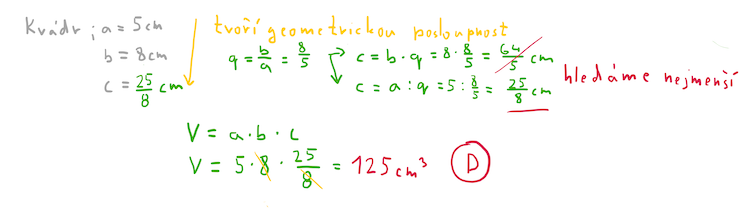 Kvádr; a = 5cm
b = 8cm
c = 25/8 cm
tvoří geometrickou posloupnost
q = b/a = 8/5
c = b · q = 8 · 8/5 = 64/5 cm
c = a : q = 5 : 8/5 = 25/8 cm
hledáme nejmenší
V = a · b · c
V = 5 · 8 · 25/8 = 125 cm³ D